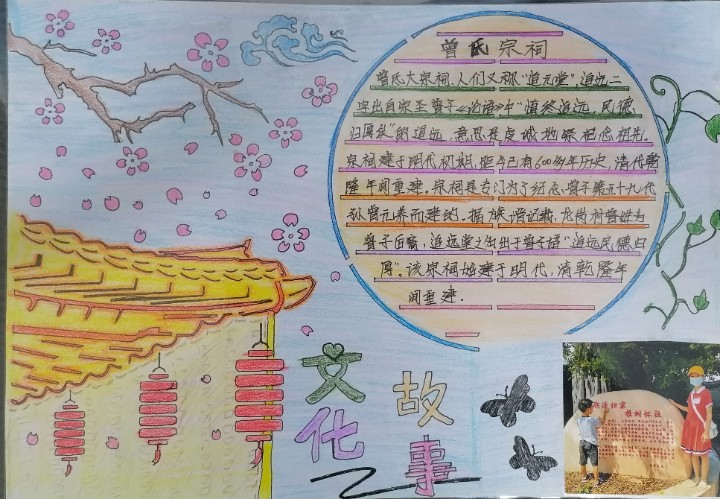 曾氏宗祠
曾氏大宗祠，人们又称"追元堂"，追远二
字出自宗圣曾子《论语》中"慎终追远，民德
归厚矣"的追远，意思是虔诚地祭祀祖先。
宗祠建于明代初期，距今已有600多年历史，清代乾
隆年间重建。宗祠是专门为了纪念曾子第五十九代
孙曾元寿而建的。据族谱记载，龙岗村曾姓为
曾子后裔，追远堂之名出于曾子语"追远民德归
厚"。该宗祠始建于明代，清乾隆年
间重建.
文化
故事